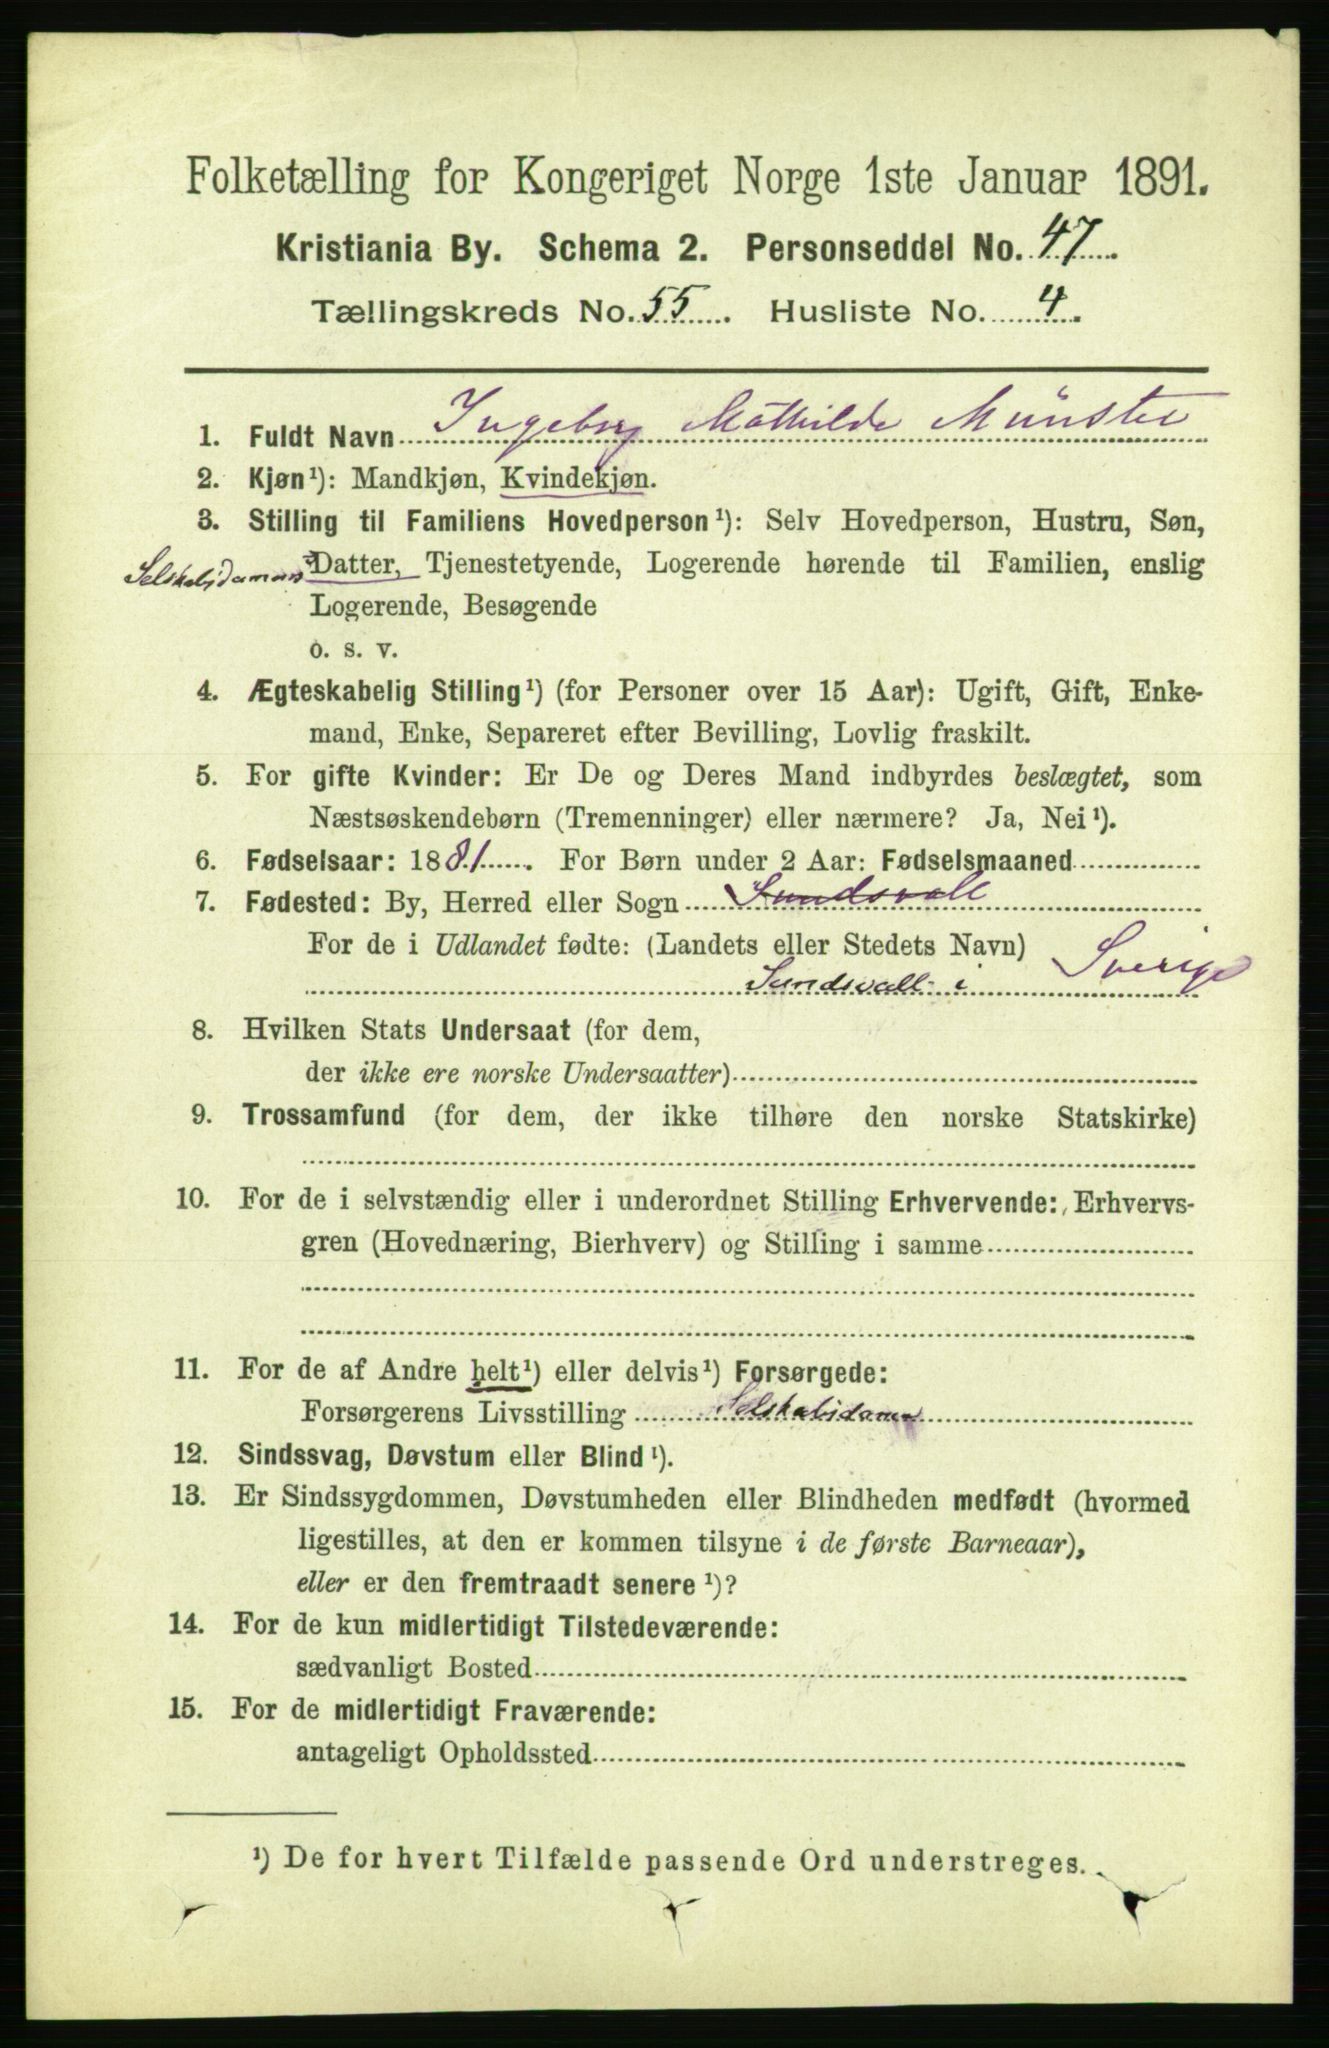 Folketælling for Kongeriget Norge 1ste Januar 1891.
Kristiania By. Schema 2. Personseddel No. 47
Tællingskreds No. 55. Husliste No. 4.
1. Fuldt Navn Ingeborg Mathilde Münster
2. Kjøn¹): Mandkjøn, Kvindekjøn.
3. Stilling til Familiens Hovedperson¹): Selv Hovedperson, Hustru, Søn,
Selskabsdamens Datter, Tjenestetyende, Logerende hørende til Familien, enslig
Logerende, Besøgende
o. s. v.
4. Ægteskabelig Stilling¹) (for Personer over 15 Aar): Ugift, Gift, Enke-
mand, Enke, Separeret efter Bevilling, Lovlig fraskilt.
5. For gifte Kvinder: Er De og Deres Mand indbyrdes beslægtet, som
Næstsøskendebørn (Tremenninger) eller nærmere? Ja, Nei¹).
6. Fødselsaar: 1881. For Børn under 2 Aar: Fødselsmaaned
7. Fødested: By, Herred eller Sogn Sundsvall
For de i Udlandet fødte: (Landets eller Stedets Navn)
Sundsvall i Sverige
8. Hvilken Stats Undersaat (for dem,
der ikke ere norske Undersaatter)
9. Trossamfund (for dem, der ikke tilhøre den norske Statskirke)
10. For de i selvstændig eller i underordnet Stilling Erhvervende: Erhvervs-
gren (Hovednæring, Bierhverv) og Stilling i samme
11. For de af Andre helt¹) eller delvis¹) Forsørgede:
Forsørgerens Livsstilling Selskabsdame
12. Sindssvag, Døvstum eller Blind¹).
13. Er Sindssygdommen, Døvstumheden eller Blindheden medfødt (hvormed
ligestilles, at den er kommen tilsyne i de første Barneaar),
eller er den fremtraadt senere¹)?
14. For de kun midlertidigt Tilstedeværende:
sædvanligt Bosted
15. For de midlertidigt Fraværende:
antageligt Opholdssted
¹) De for hvert Tilfælde passende Ord understreges.